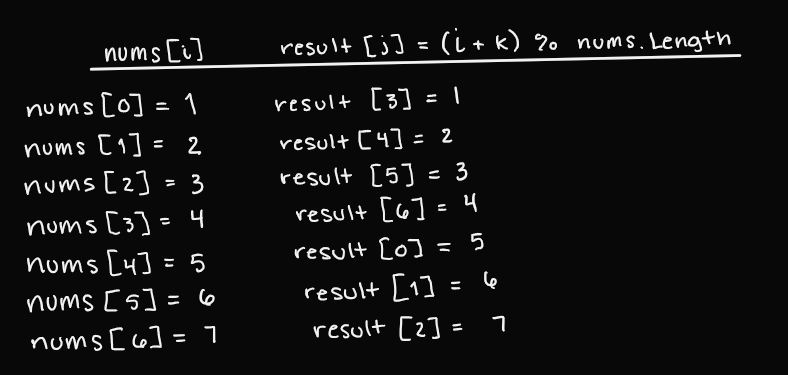 nums[i] result [j] = (i + k) % nums.Length
nums[0] = 1 result [3] = 1
nums [1] = 2 result [4] = 2
nums[2] = 3 result [5] = 3
nums[3] = 4 result [6] = 4
nums [4] = 5 result [0] = 5
nums [5] = 6 result [1] = 6
nums[6] = 7 result [2] = 7